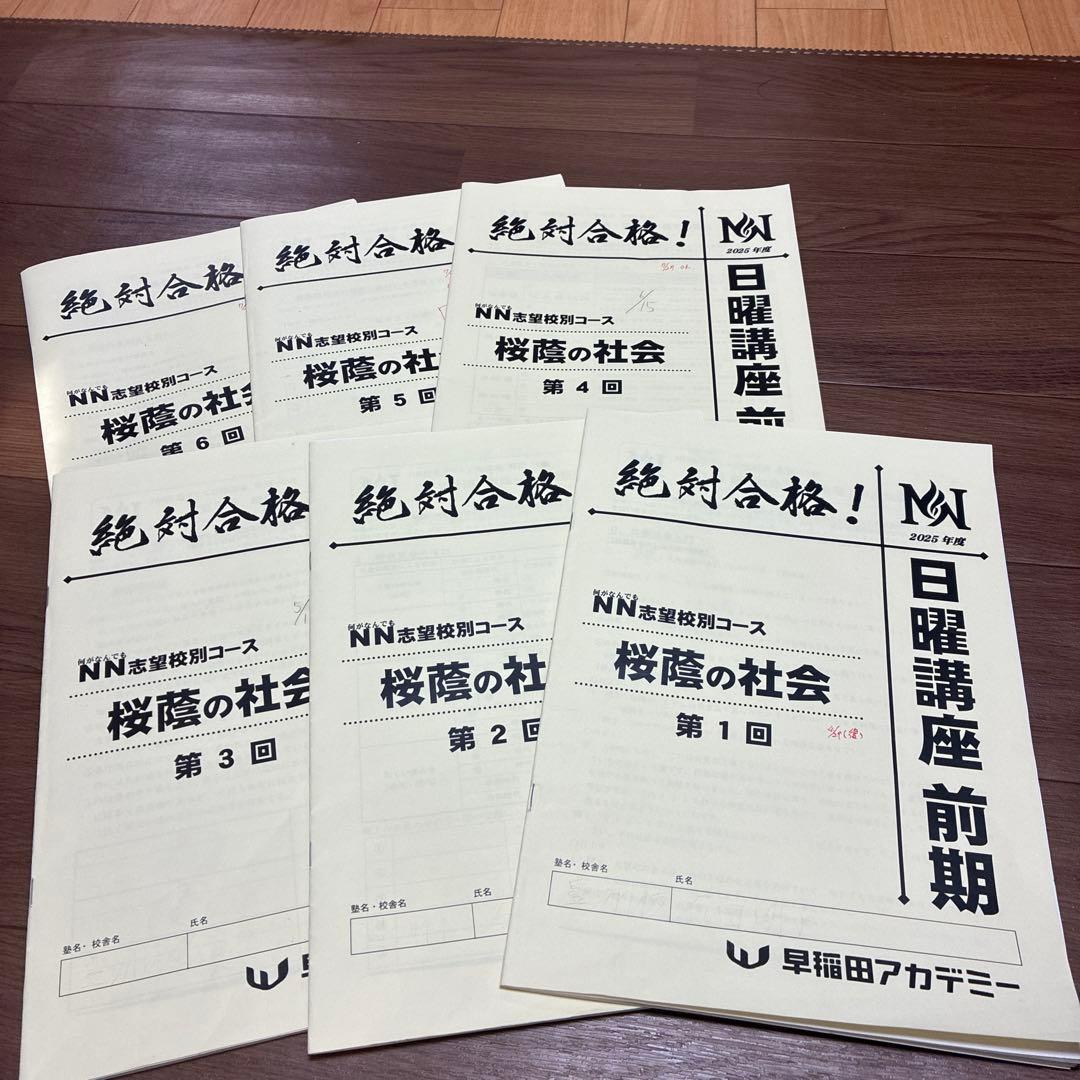 絶対合格
何がなんでも
NN志望校別コース
桜蔭の社会
第6回
絶対合格
何がなんでも
NN志望校別コース
桜蔭の社
第5回
絶対合格!
NN
2025年度
日曜講座 前
何がなんでも
NN志望校別コース
桜蔭の社会
第4回
絶対合格
何がなんでも
NN志望校別コース
桜蔭の社会
第3回
塾名・校舎名
氏名
早
絶対合格
何がなんでも
NN志望校別コース
桜蔭の社
第2回
塾名・校舎名
氏名
絶対合格!
NN
2025年度
日曜講座 前期
何がなんでも
NN志望校別コース
桜蔭の社会
第1回
塾名・校舎名
氏名
早稲田アカデミー